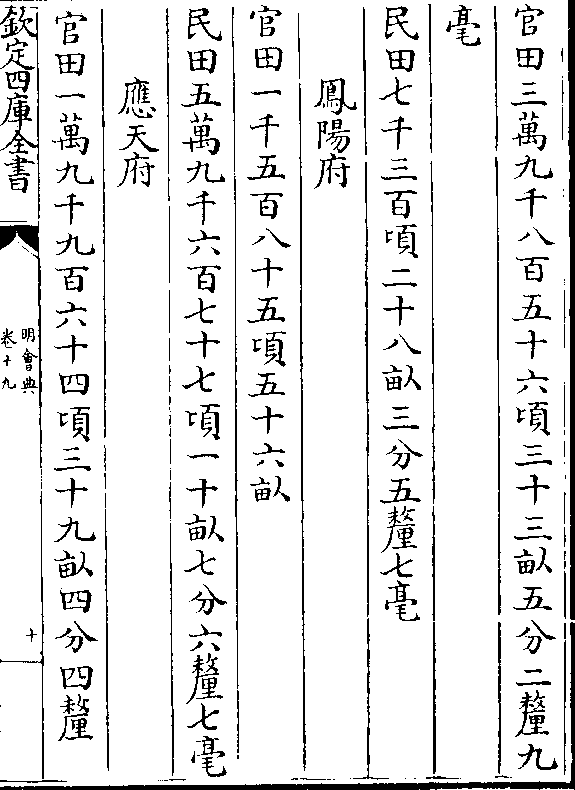 官田三萬九千八百五十六頃三十三畝五分二釐九
毫
民田七千三百頃二十八畝三分五釐七毫
鳳陽府
官田一千五百八十五頃五十六畝
民田五萬九千六百七十七頃一十畝七分六釐七毫
應天府
官田一萬九千九百六十四頃三十九畝四分四釐
欽定四庫全書
明會典
卷十九
十